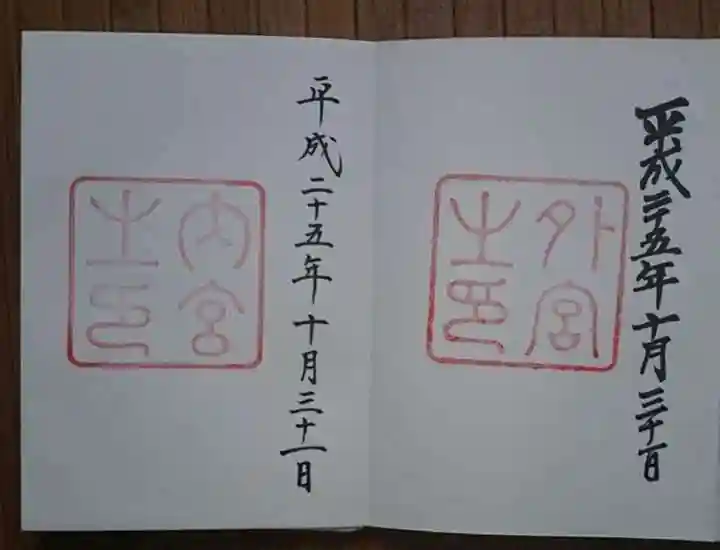 平成二十五年十月三十一日
外宮
之印
平成二十五年十月三十一日
内宮
之印